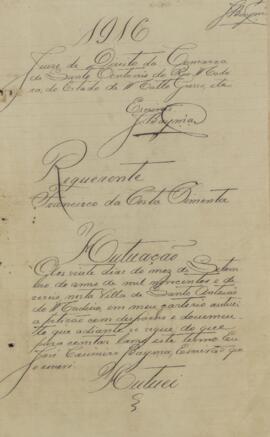 1916
Juizo de Direito da Comarca
de Santo Antonio do Rio Madei
ra, do Estado de Matto Grosso, etc
Escrivão
J. Bayma
Requerente
Francisco da Costa Pimentel
Autuação
Aos vinte dias do mez de Setem
bro do anno de mil novecentos e de
zeseis nesta Villa de Santo Antonio
do Madeira, em meu cartorio autuei
a petição com despacho e documen
to que adiante se segue do que
para constar lavro este termo Eu
José Bayma, Escrivão que
escrevi
Autuei